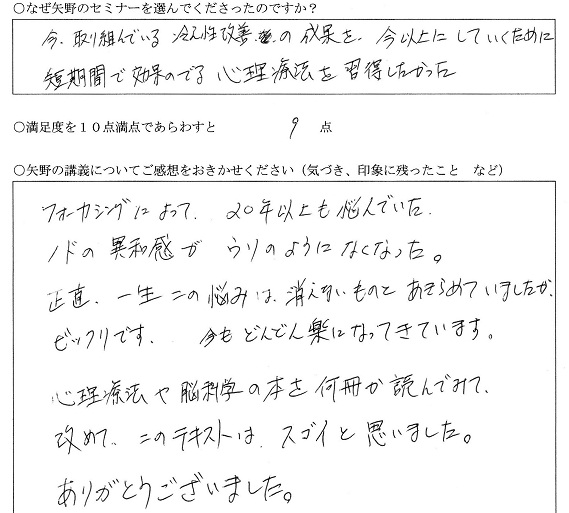 ○なぜ矢野のセミナーを選んでくださったのですか？
今、取り組んでいる 冷え性改善の 成果を、今以上に していくために
短期間で効果のでる 心理療法を 習得したかった
○満足度を１０点満点であらわすと 9 点
○矢野の講義についてご感想をおきかせください（気づき、印象に残ったこと など）
フォーカシングによって、20年以上も悩んでいた、
ノドの異和感が ウソのようになくなった。
正直、一生この悩みは、消えないものと あきらめていましたが、
ビックリです。 今も どんどん楽になってきています。
心理療法や脳科学の本を何冊か読んでみて、
改めて、このテキストは、スゴイと思いました。
ありがとうございました。